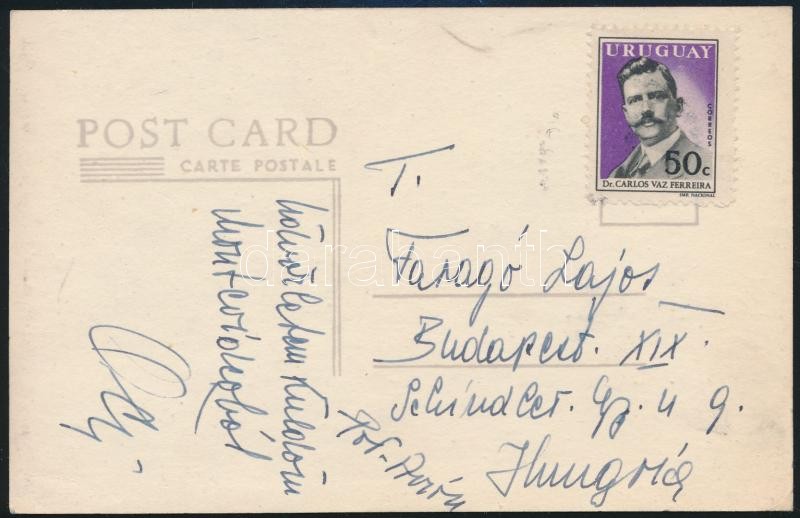 POST CARD
CARTE POSTALE
URUGUAY
CORREOS
50c
Dr. CARLOS VAZ FERREIRA
IMP. NACIONAL
Üdvözletem küldöm
Montevideoból
T.
Faragó Lajos
Budapest. XIX.
Schindler. Gy. u 9.
Hungría
Por-Avión
darabanth